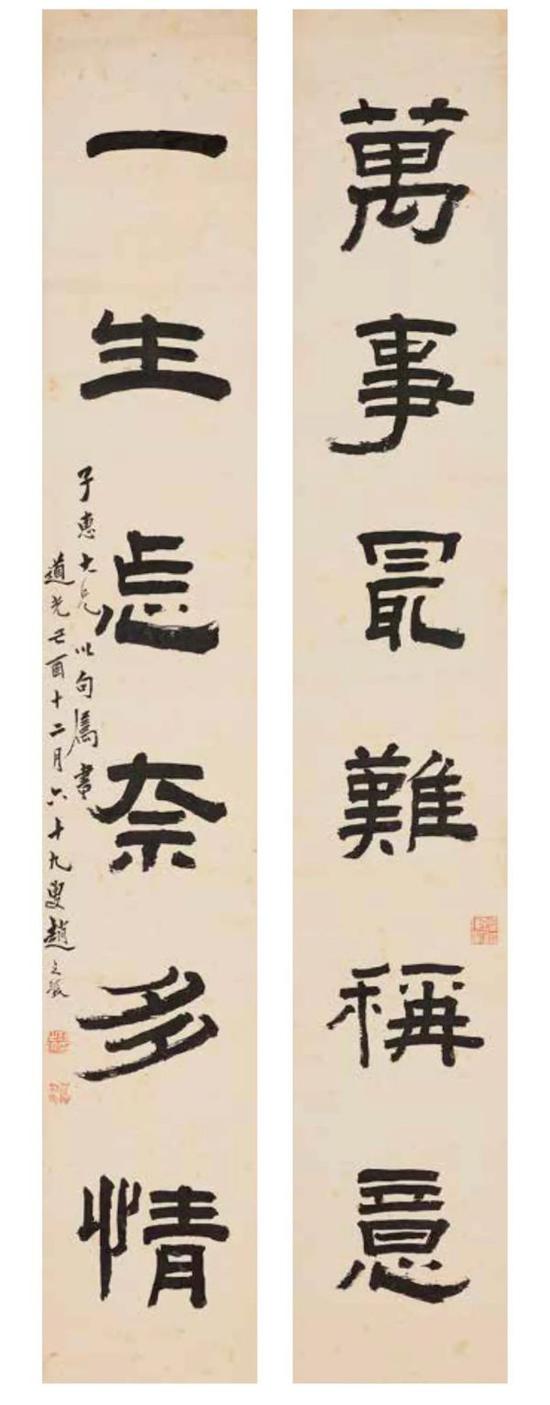 萬事最難稱意
一生怎奈多情
子惠大兄以句屬書
道光己酉十二月六十九叟趙之琛